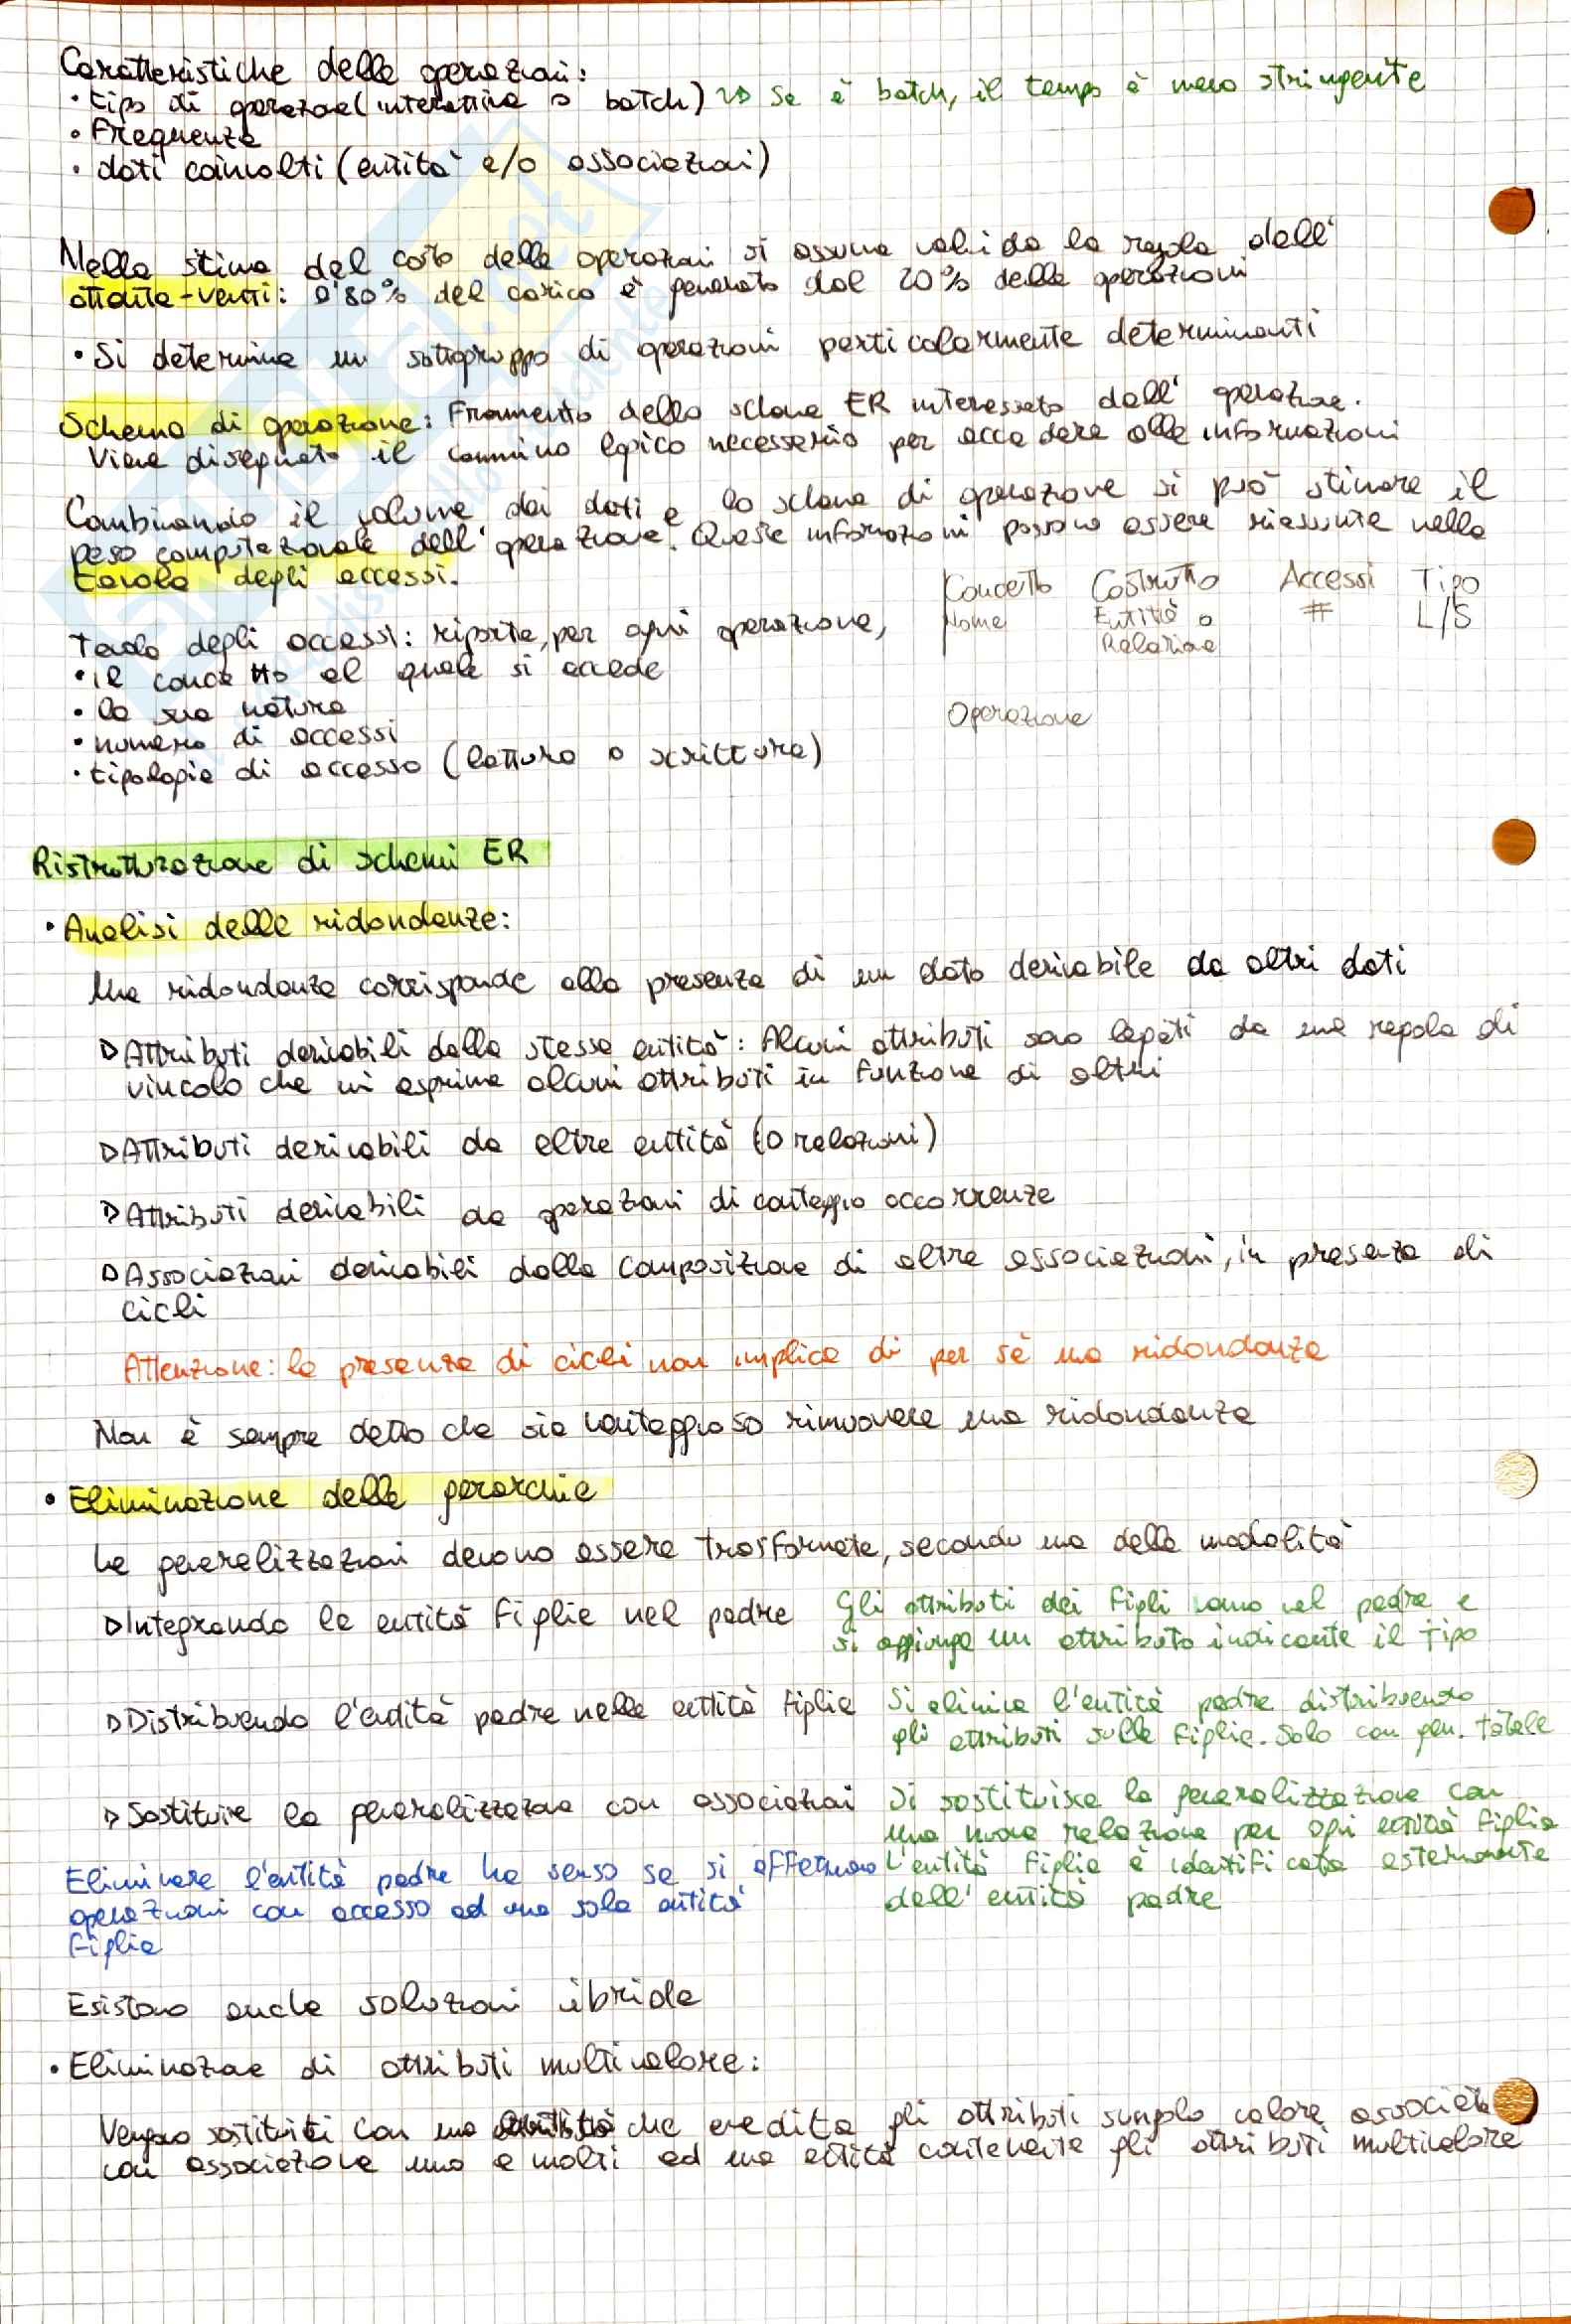 Caratteristiche delle operazioni:
• tipo di operazione (interattiva o batch) ~> Se è batch, il tempo è meno stringente
• Frequenza
• dati coinvolti (entità e/o associazioni)
Nella stima del costo delle operazioni si assume valida la regola dell'
ottanta-venti: l'80% del carico è generato dal 20% delle operazioni
• Si determina un sottogruppo di operazioni particolarmente determinanti
Schema di operazione: Frammento dello schema ER interessato dall' operazione.
Viene disegnato il cammino logico necessario per accedere alle informazioni
Combinando il volume dei dati e lo schema di operazione si può stimare il
peso computazionale dell' operazione. Queste informazioni possono essere riassunte nella
tavola degli accessi.
Concetto Costrutto Accessi Tipo
Nome Entità o # L/S
Relazione
Operazione
Tavola degli accessi: riporta, per ogni operazione,
• il concetto al quale si accede
• la sua natura
• numero di accessi
• tipologia di accesso (lettura o scrittura)
Ristrutturazione di schemi ER
• Analisi delle ridondanze:
Una ridondanza corrisponde alla presenza di un dato derivabile da altri dati
▷ Attributi derivabili dalla stessa entità: Alcuni attributi sono legati da una regola di
vincolo che mi esprime alcuni attributi in funzione di altri
▷ Attributi derivabili da altre entità (o relazioni)
▷ Attributi derivabili da operazioni di conteggio occorrenze
▷ Associazioni derivabili dalla composizione di altre associazioni, in presenza di
cicli
Attenzione: la presenza di cicli non implica di per sè una ridondanza
Non è sempre detto che sia vantaggioso rimuovere una ridondanza
• Eliminazione delle gerarchie
Le generalizzazioni devono essere trasformate, secondo una delle modalità
▷ Integrando le entità figlie nel padre Gli attributi dei figli vanno nel padre e
si aggiunge un attributo indicante il tipo
▷ Distribuendo l'entità padre nelle entità figlie Si elimina l'entità padre distribuendo
gli attributi sulle figlie. Solo con gen. totale
▷ Sostituire la generalizzazione con associazioni Si sostituisce la generalizzazione con
una nuova relazione per ogni entità figlia
L'entità figlia è identificata esternamente
dall' entità padre
Eliminare l'entità padre ha senso se si effettuano
operazioni con accesso ad una sola entità
figlia
Esistono anche soluzioni ibride
• Eliminazione di attributi multivalore:
Vengono sostituiti con una entità che eredita gli attributi singolo valore associata
con associazione uno a molti ad una entità contenente gli attributi multivalore